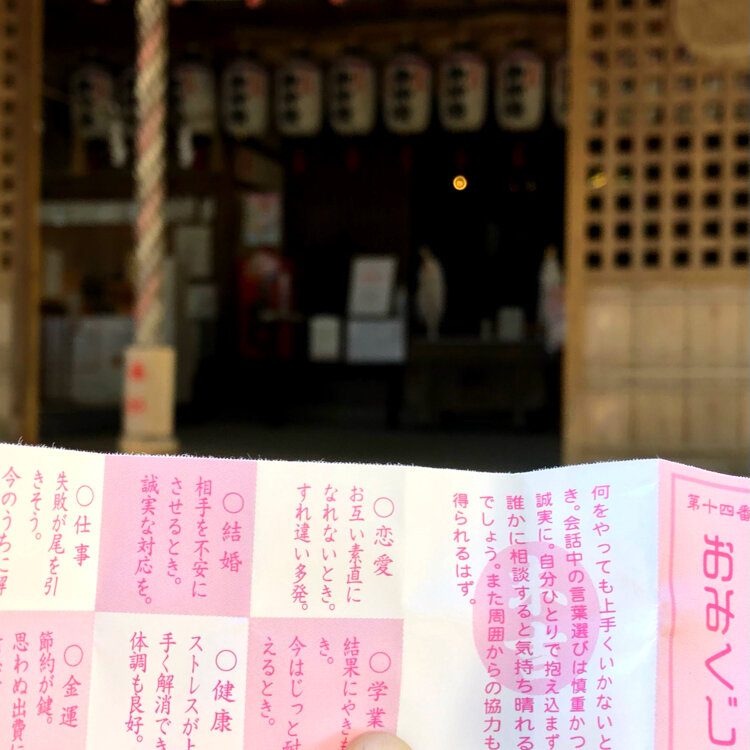 第十四番
おみくじ
何をやっても上手くいかないと
き。会話中の言葉選びは慎重かつ
誠実に。自分ひとりで抱え込まず
誰かに相談すると気持ち晴れる
でしょう。また周囲からの協力も
得られるはず。
○恋愛
お互い素直に
なれないとき。
すれ違い多発。
○学業
結果にやきも
き。
今はじっと耐
えるとき。
○結婚
相手を不安に
させるとき。
誠実な対応を。
○健康
ストレスが上
手く解消でき
体調も良好。
○仕事
失敗が尾を引
きそう。
今のうちに解
○金運
節約が鍵。
思わぬ出費に